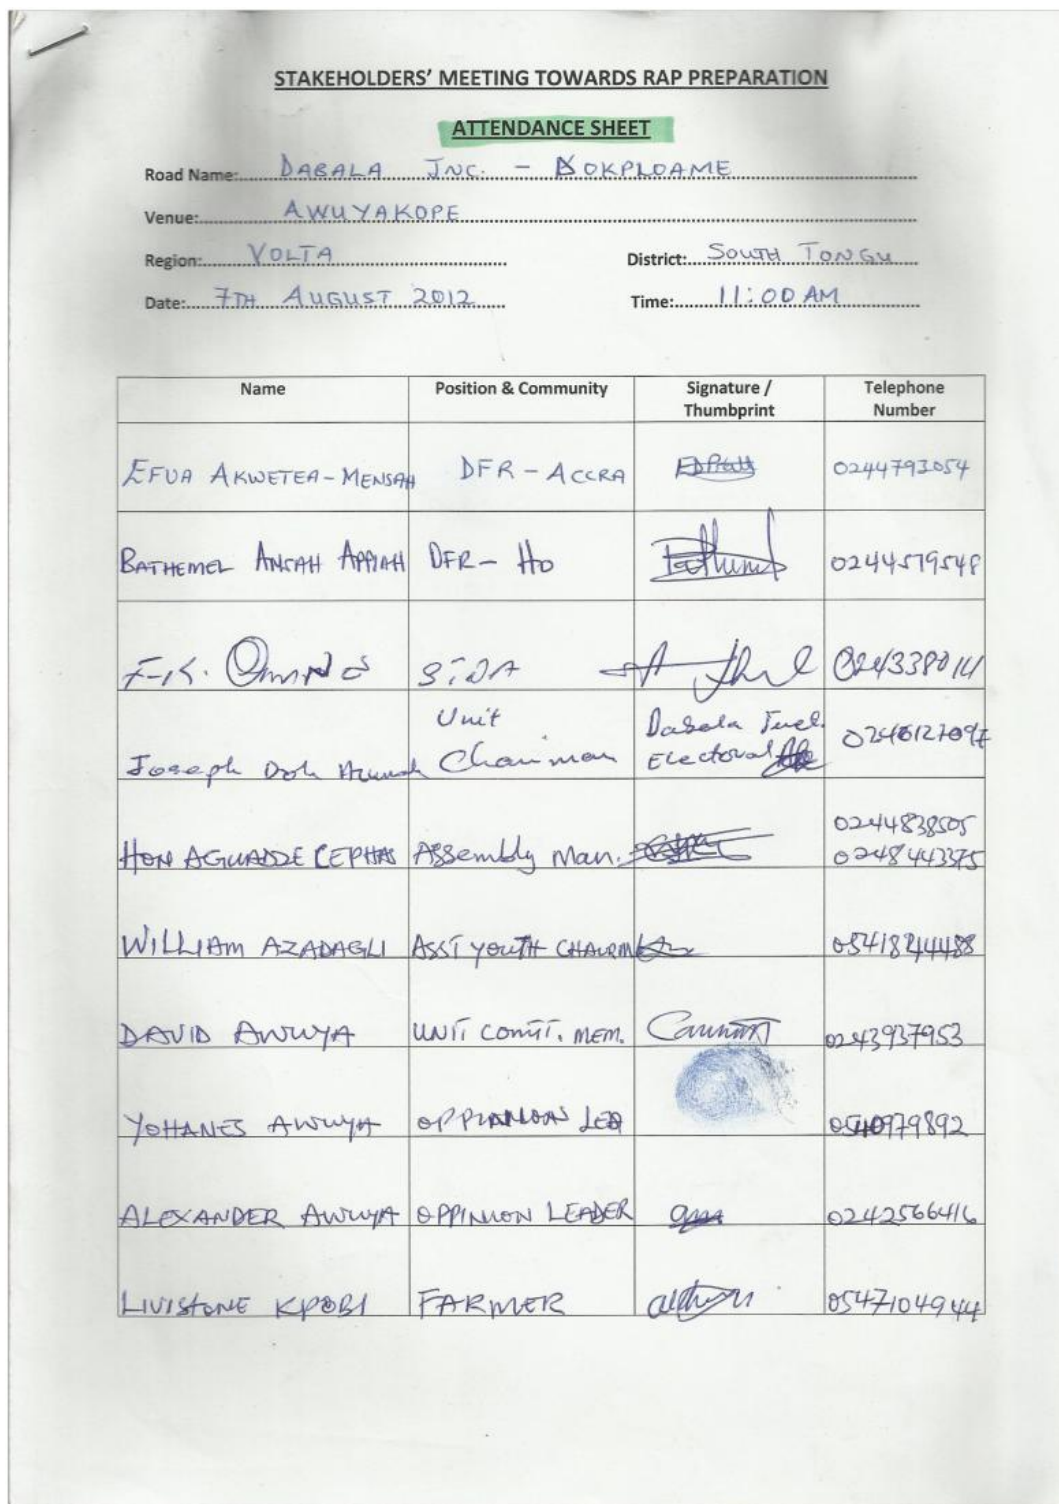 STAKEHOLDERS' MEETING TOWARDS RAP PREPARATION
ATTENDANCE SHEET
Road Name: DABALA JNC. - DOKPLOAME
Venue: AWUYAKOPE
Region: VOLTA District: SOUTH TONGU
Date: 7TH AUGUST 2012 Time: 11:00 AM
Name Position & Community Signature / Thumbprint Telephone Number
EFUA AKWETEA-MENSAH DFR - ACCRA 0244793054
BATHEMEL ANSAH APPIAH DFR - HO 0244579548
F.K. SIDA
Joseph Doh Unit Chairman Dabala Electoral
HON AGUADZE CEPHAS Assembly Man. 0244838505 0248443375
WILLIAM AZADAGLI ASST YOUTH 0541844488
DAVID AWUYA UNIT COMTT. MEM. 0243937953
YOHANES AWUYA OPPINION LEA 0540979892
ALEXANDER AWUYA OPPINION LEADER 0242566416
LIVISTONE KPOBI FARMER 0547104944